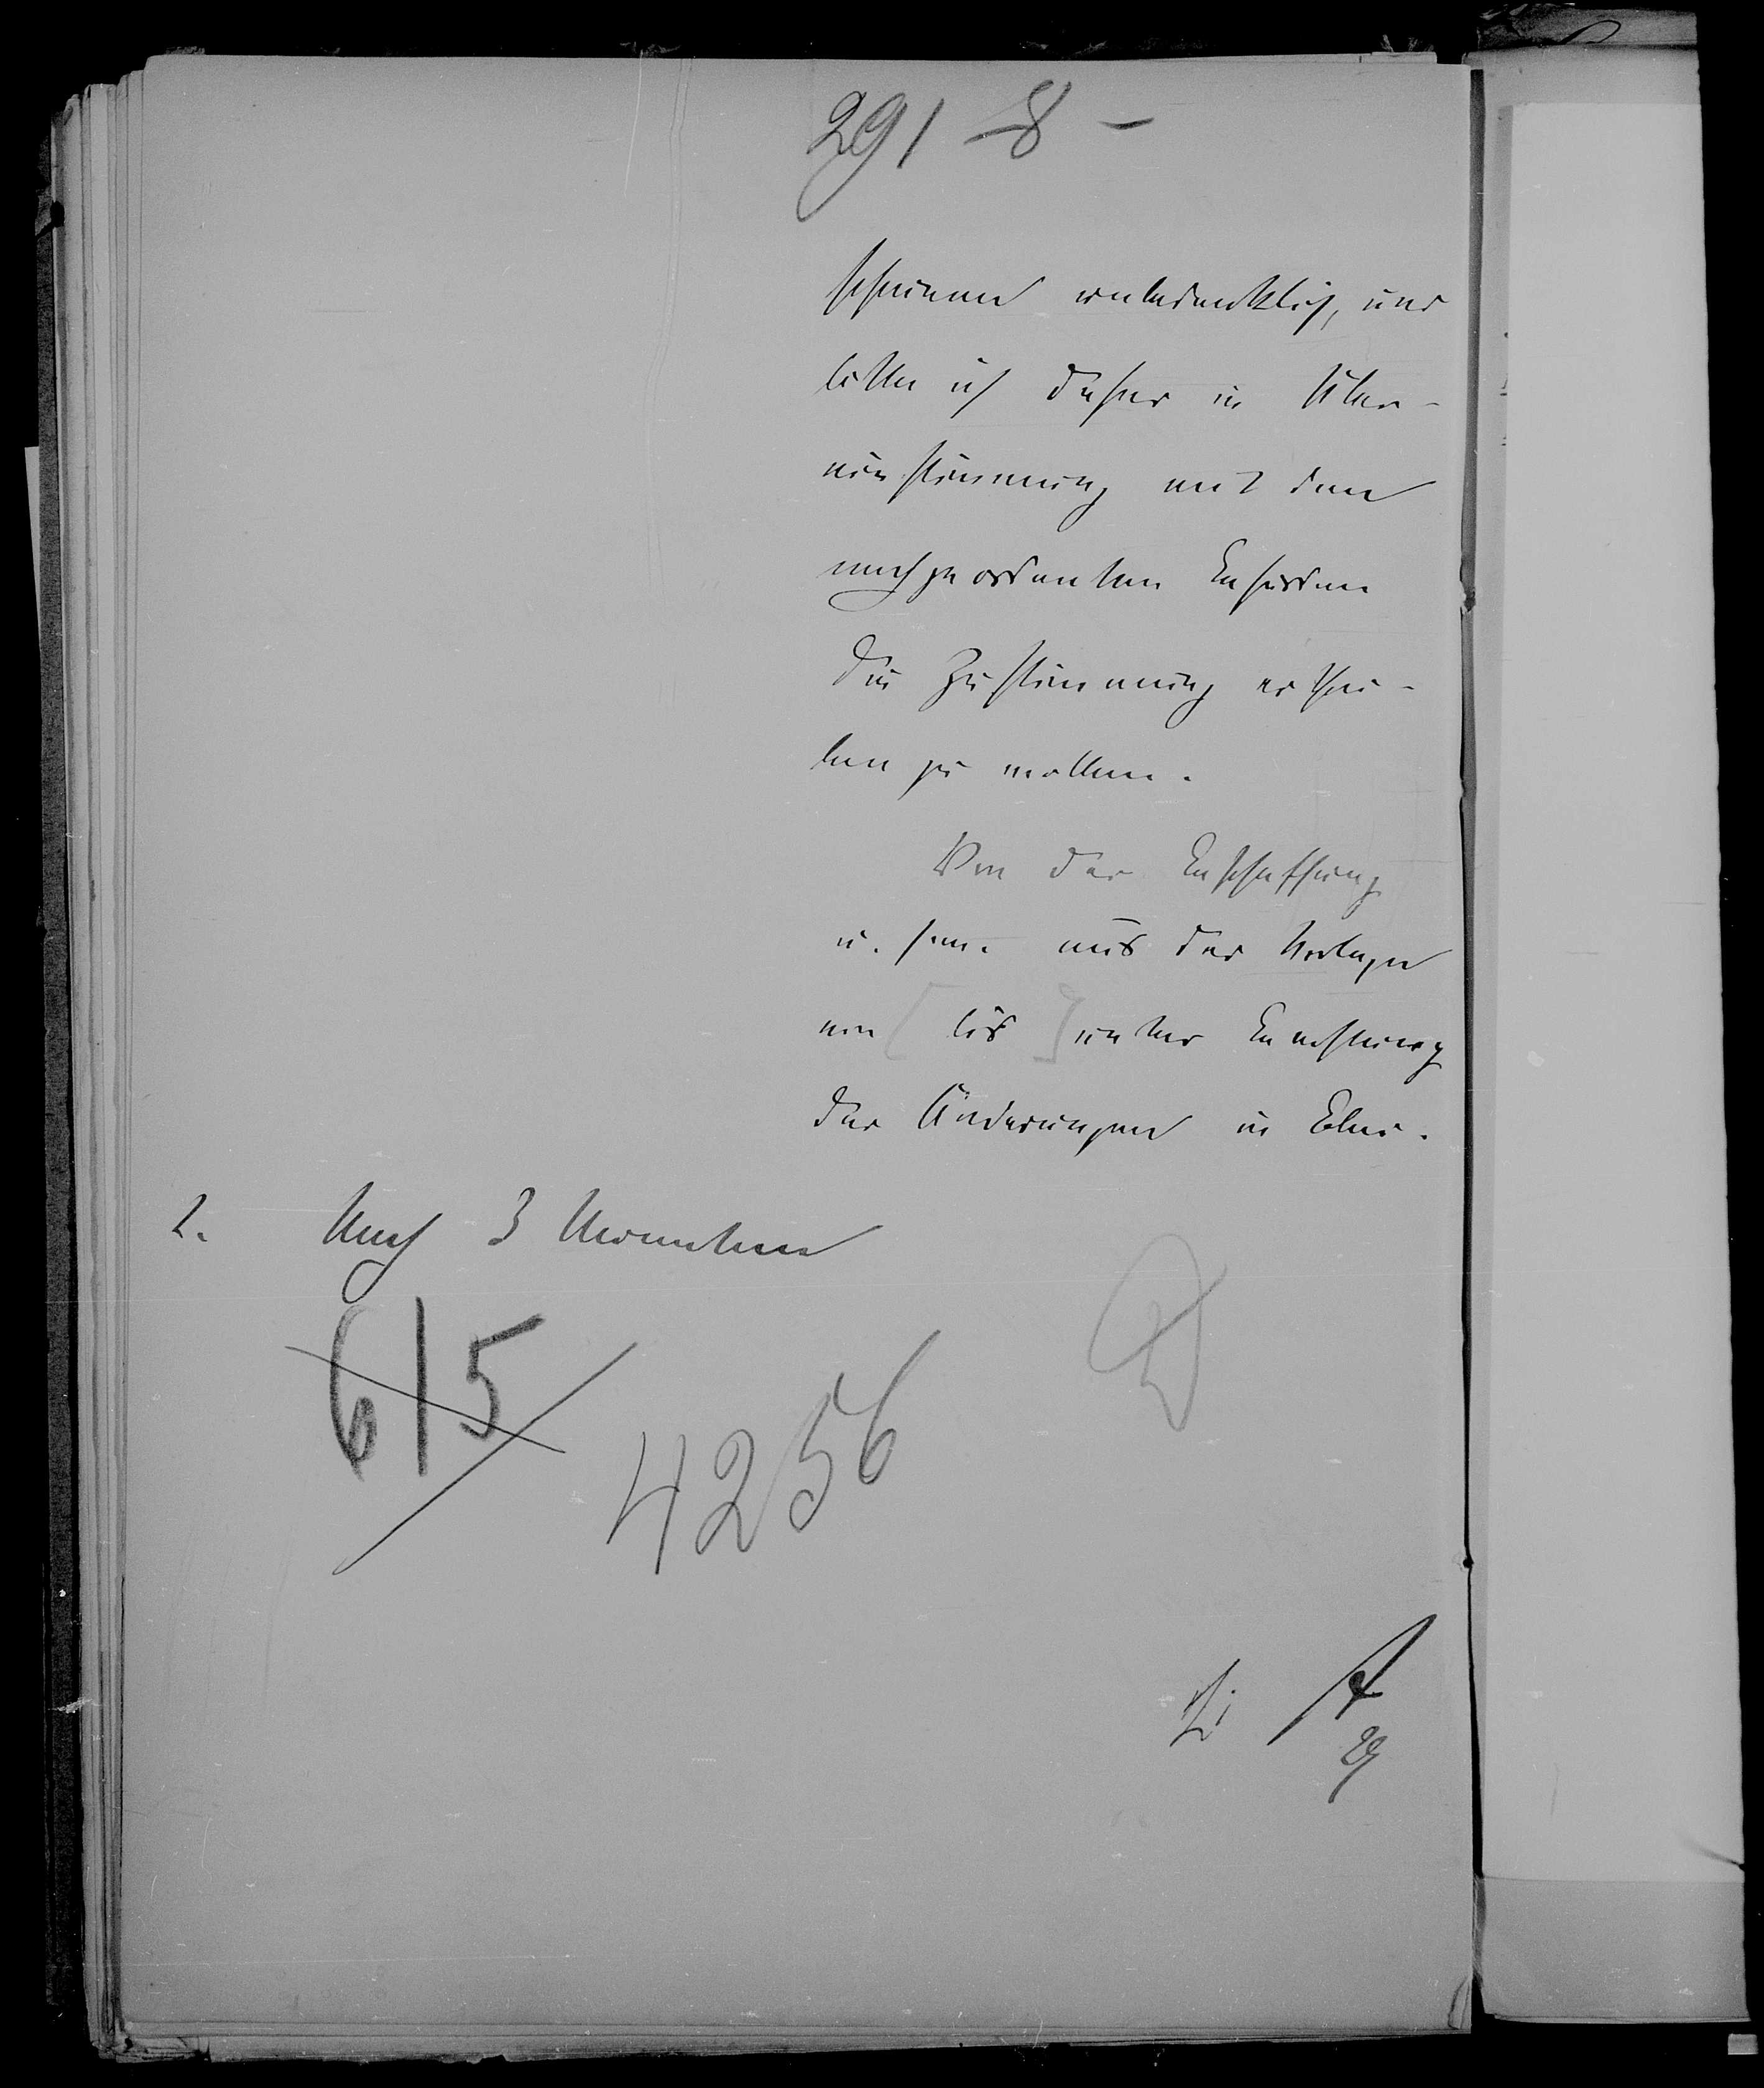 291 - 8 -
scheinen unbedenklich, und
bitte ich daher in Über-
einstimmung mit den
nachgeordneten Behörden
die Zustimmung erthei-
len zu wollen.
Von der Beschaffung
u. s. w. aus der Vorlage
von [ bis ] unter Beachtung
der Änderungen in Blei.
2. Nach 3 Monaten
615
4256
29